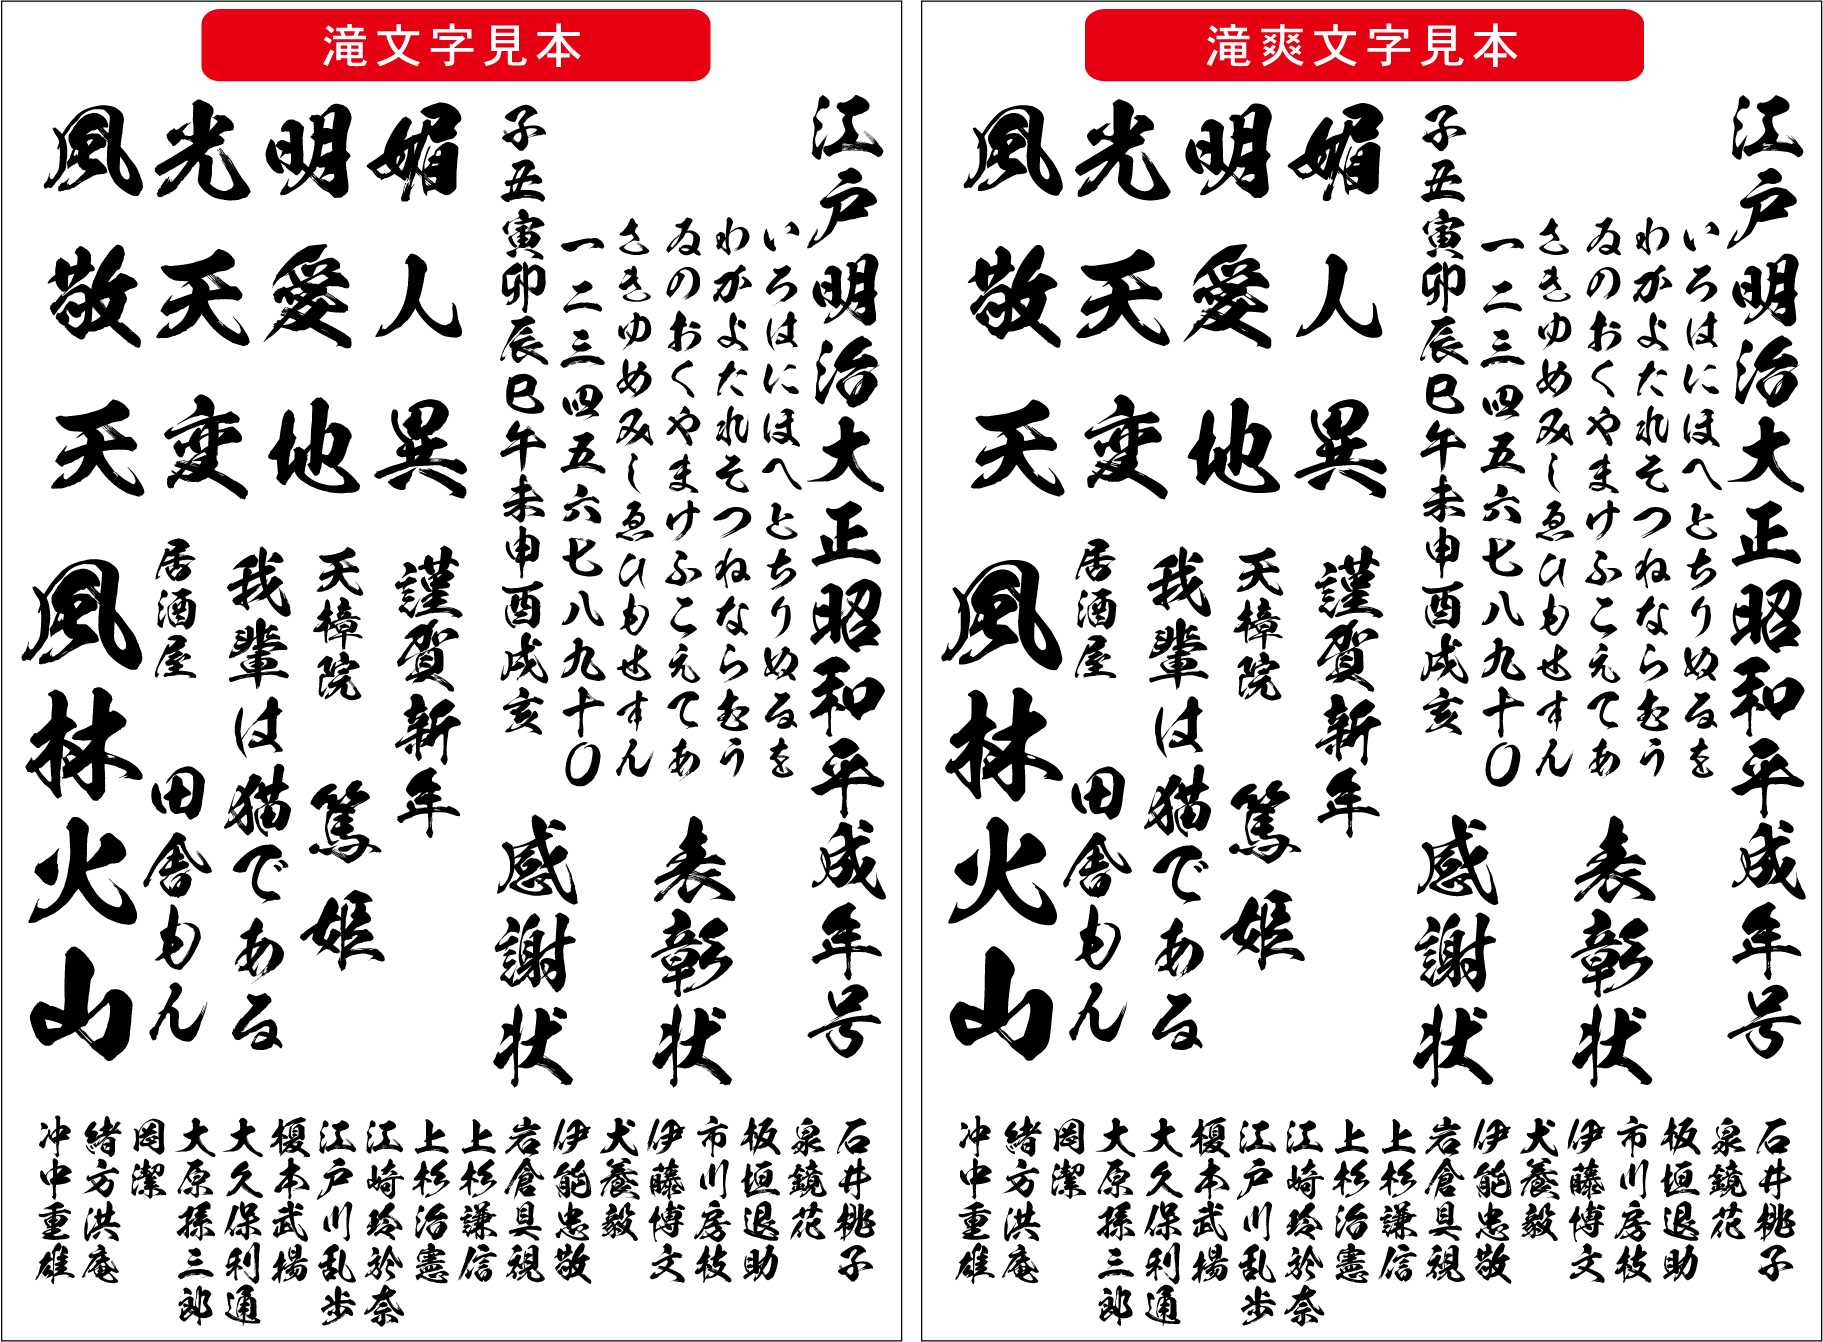 滝文字見本
江戸明治大正昭和平成年号
いろはにほへとちりぬるを
わかよたれそつねならむう
ゐのおくやまけふこえてあ
さきゆめみしゑひもせすん
一二三四五六七八九十〇
子丑寅卯辰巳午未申酉戌亥
表彰状
感謝状
風光明媚
敬天愛人
天変地異
謹賀新年
天樟院 篤姫
我輩は猫である
居酒屋
田舎もん
風林火山
石井桃子
泉鏡花
板垣退助
市川房枝
伊藤博文
犬養毅
伊能忠敬
岩倉具視
上杉謙信
上杉治憲
江崎玲於奈
江戸川乱歩
榎本武揚
大久保利通
大原孫三郎
岡潔
緒方洪庵
沖中重雄
滝爽文字見本
江戸明治大正昭和平成年号
いろはにほへとちりぬるを
わかよたれそつねならむう
ゐのおくやまけふこえてあ
さきゆめみしゑひもせすん
一二三四五六七八九十〇
子丑寅卯辰巳午未申酉戌亥
表彰状
感謝状
風光明媚
敬天愛人
天変地異
謹賀新年
天樟院 篤姫
我輩は猫である
居酒屋
田舎もん
風林火山
石井桃子
泉鏡花
板垣退助
市川房枝
伊藤博文
犬養毅
伊能忠敬
岩倉具視
上杉謙信
上杉治憲
江崎玲於奈
江戸川乱歩
榎本武揚
大久保利通
大原孫三郎
岡潔
緒方洪庵
沖中重雄